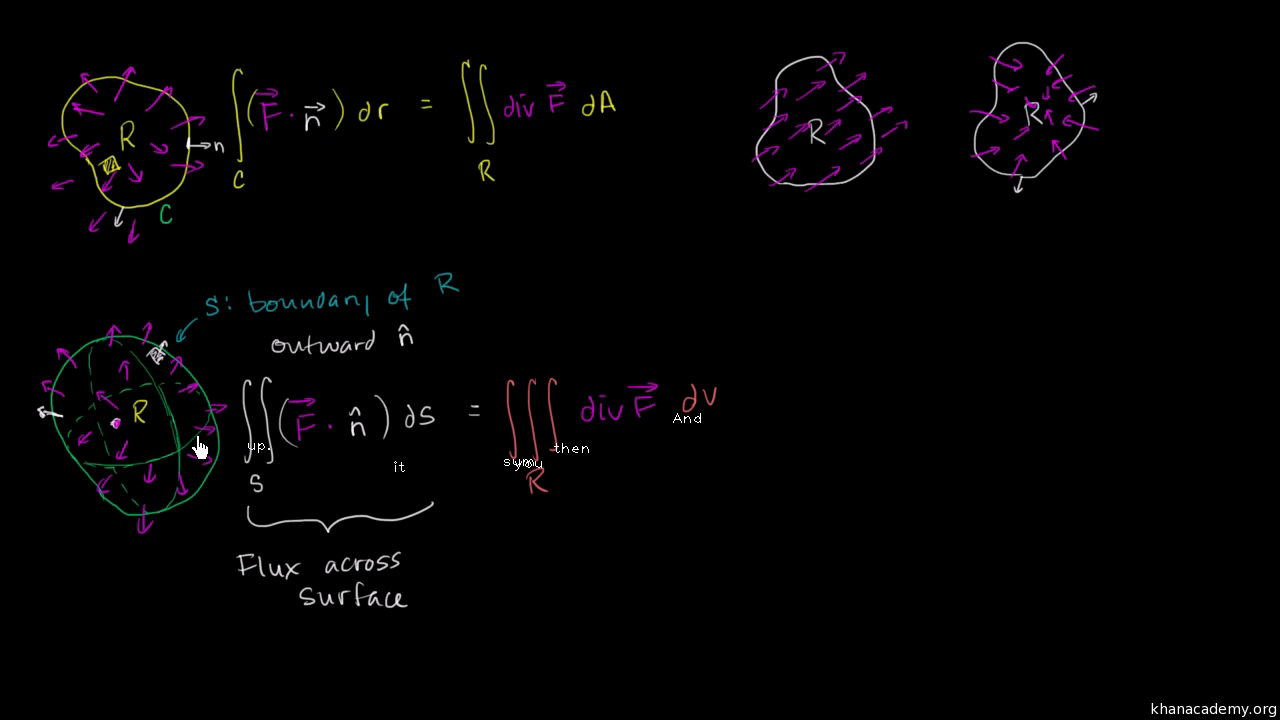 R
n
C
∫_C (F⃗ · n⃗) dr = ∬_R div F⃗ dA
R
R
S: boundary of R
outward n̂
R
∬_S (F⃗ · n̂) dS = ∭_R div F⃗ dv
And
up. then
it you
Flux across
surface
khanacademy.org